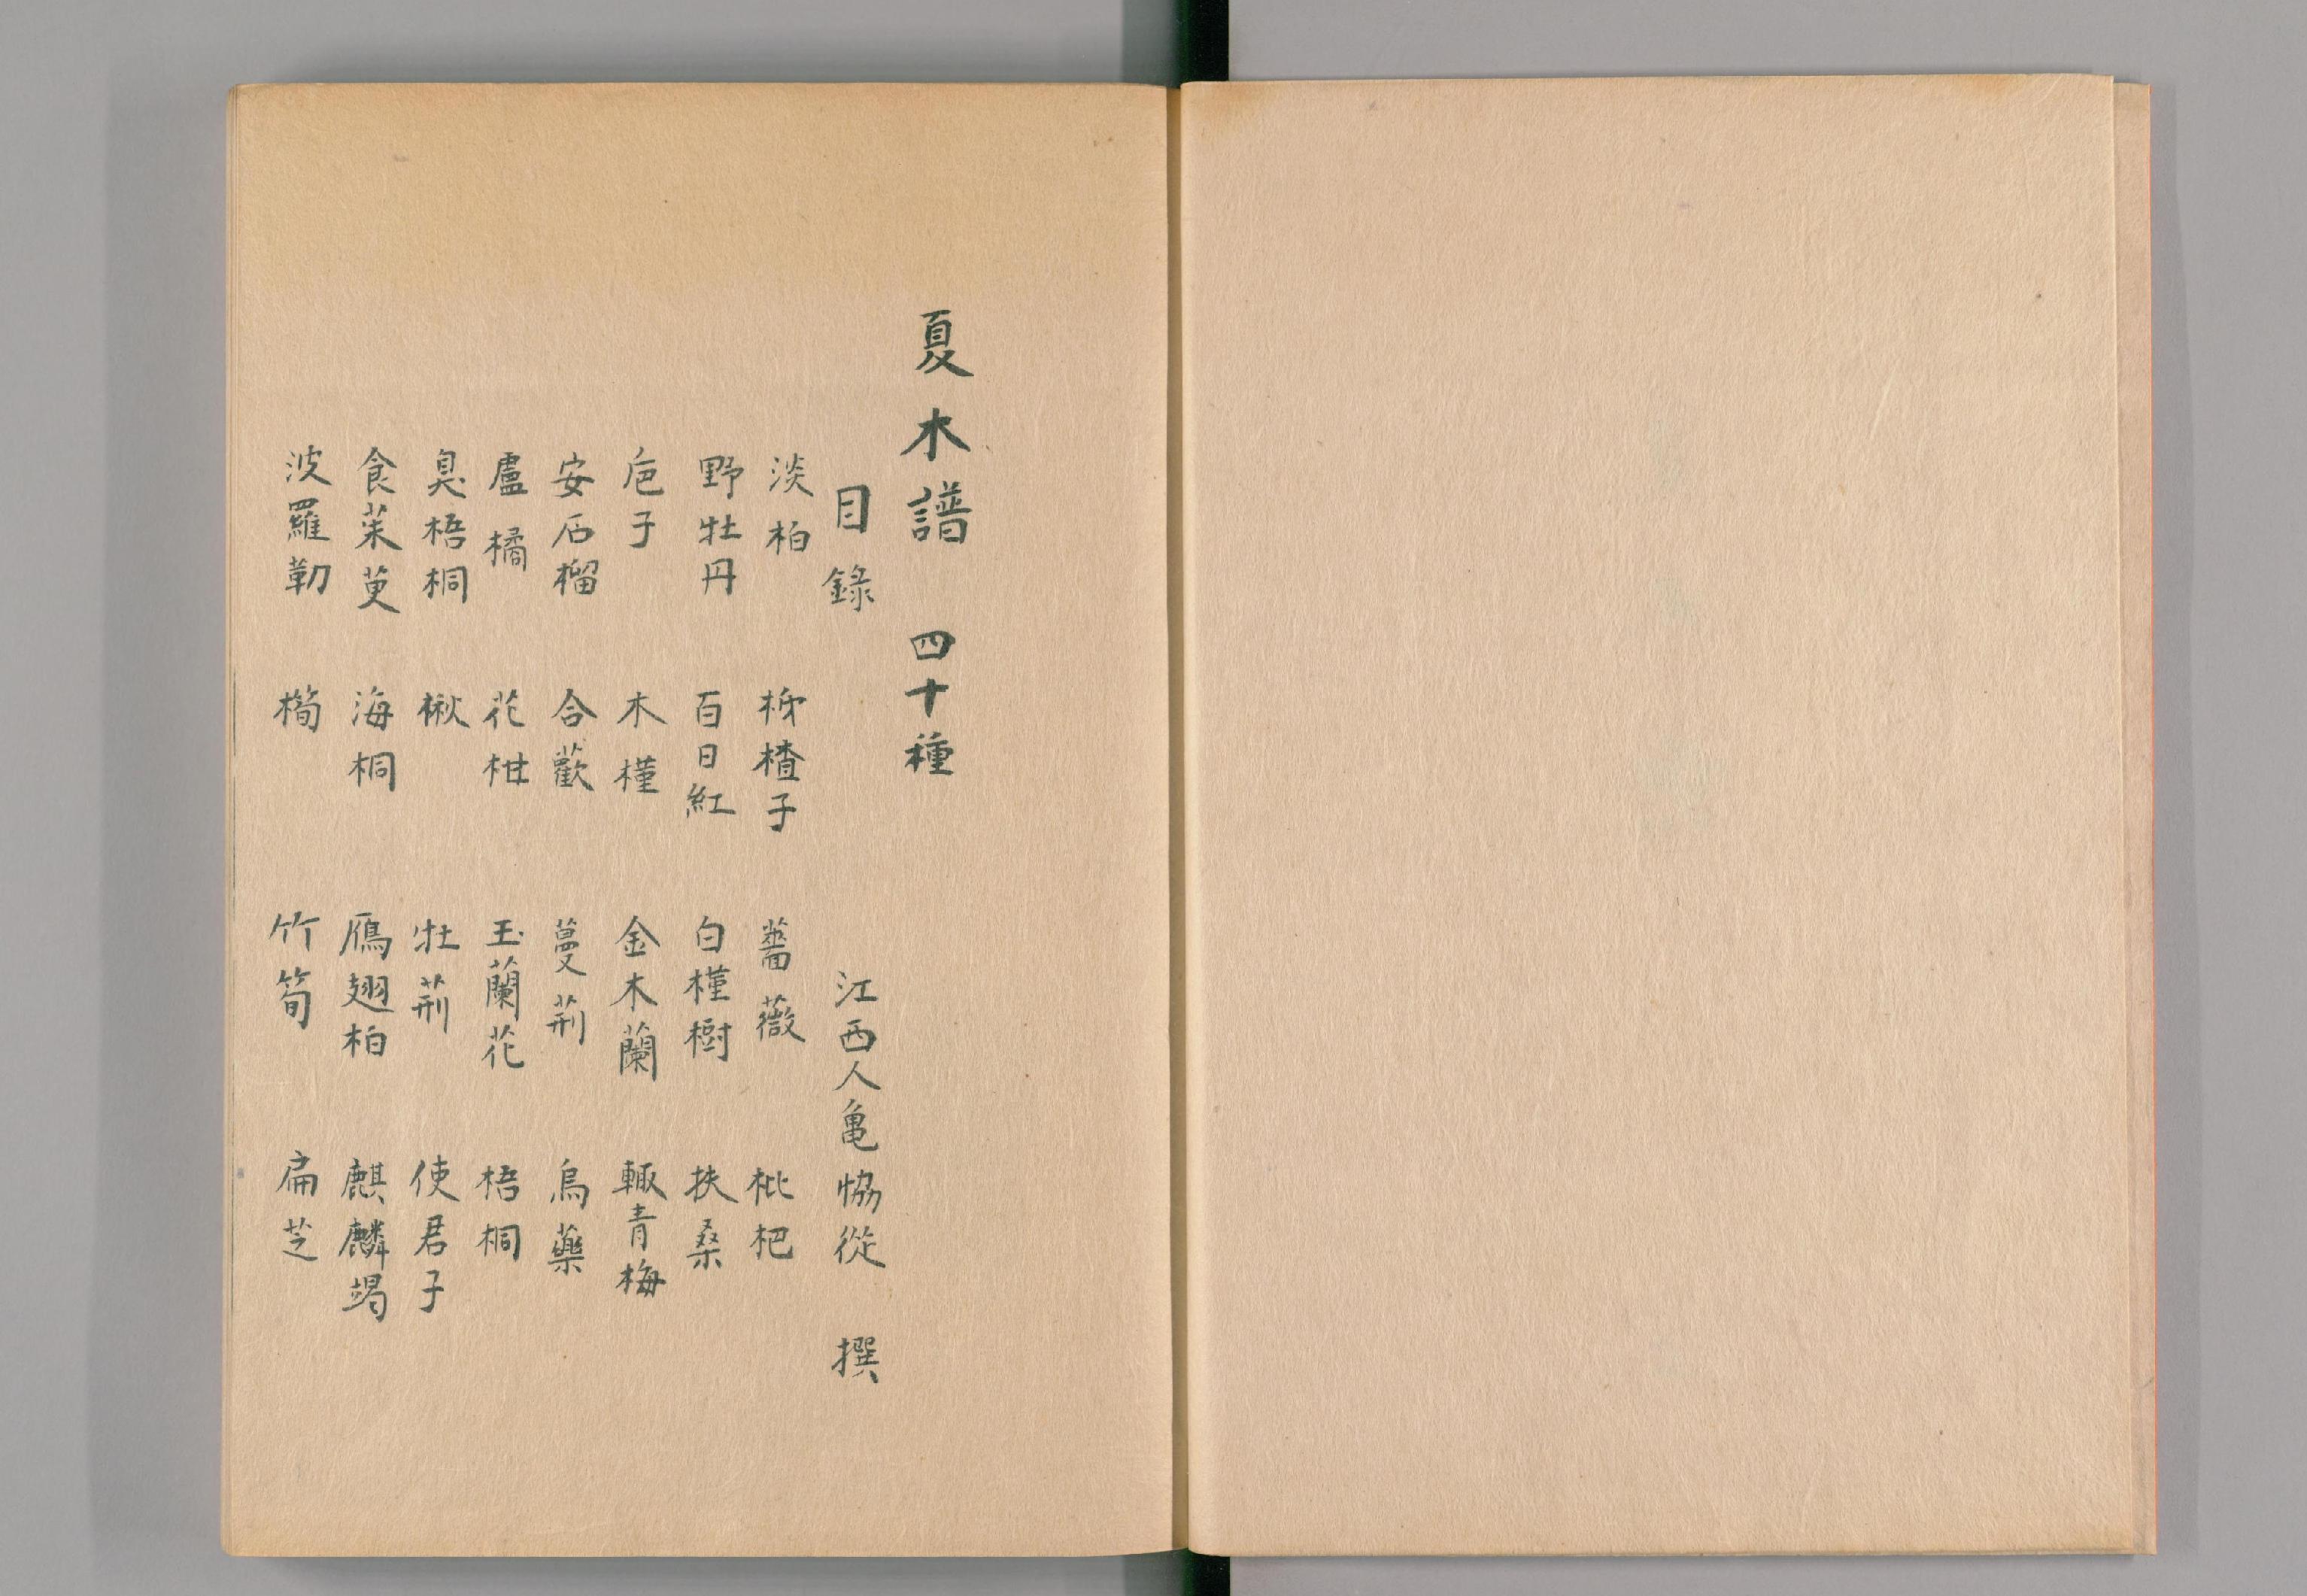 夏木譜 四十種
目錄 江西人亀恊從 撰
淡柏 柹楂子 薔薇 枇杷
野牡丹 百日紅 白槿樹 扶桑
巵子 木槿 金木蘭 輙青梅
安石榴 合歡 蔓荊 烏藥
盧橘 花柑 玉蘭花 梧桐
臭梧桐 楸 牡荊 使君子
食茱萸 海桐 鴈翅柏 麒麟竭
波羅勒 竹筍 扁芝